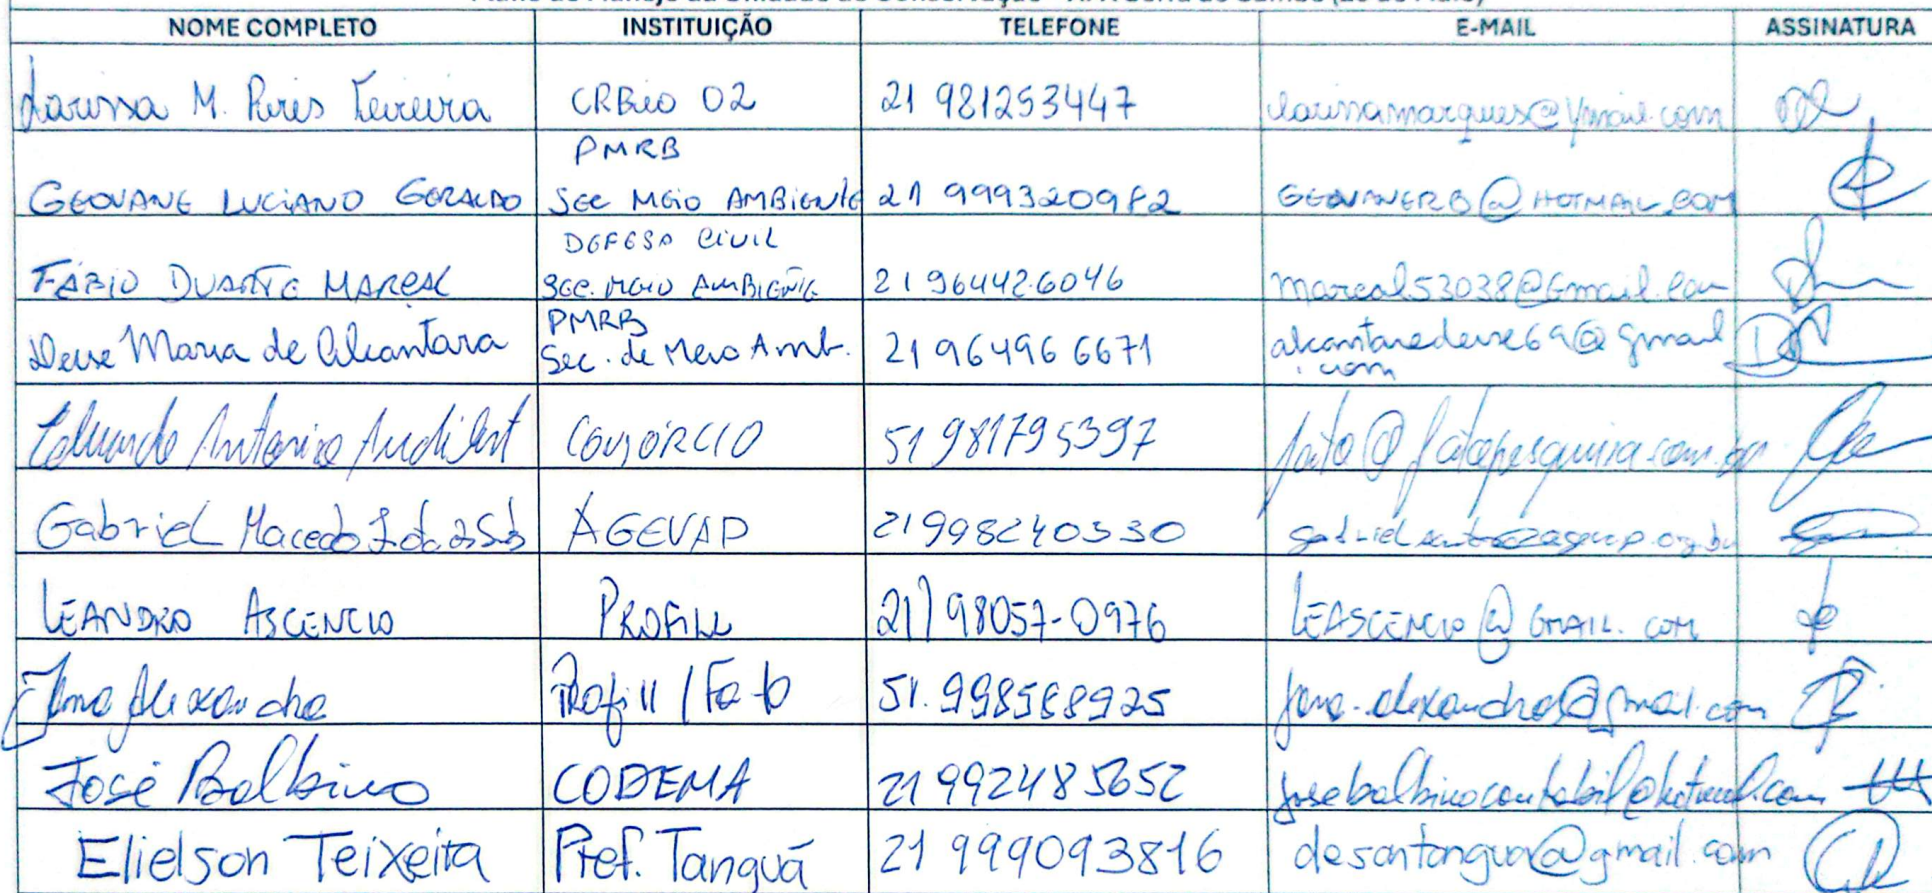 NOME COMPLETO INSTITUIÇÃO TELEFONE E-MAIL ASSINATURA
Larissa M. Pires Teixeira CRBio 02 21 981253447 larissamarques@ymail.com
PMRB
GEOVANE LUCIANO GERALDO SEC MEIO AMBIENTE 21 999320982 GEOVANERB@HOTMAIL.COM
DEFESA CIVIL
FÁBIO DUARTE MARÇAL SEC. MEIO AMBIENTE 21 964426046 marcal53038@Gmail.com
PMRB
Deise Maria de Alcantara Sec. de Meio Amb. 21 96496 6671 alcantaradeise69@gmail
.com
Eduardo Antonio CONSÓRCIO 51 981795397 fato@fatopesquisa.com.br
Gabriel Macedo AGEVAP 21998240330
LEANDRO ASCENCIO PROFILL 21) 98057-0976 LEASCENCIO@GMAIL.COM
Jana Alexandra Profill / Fato 51.998588925
José Balbino CODEMA 21 992485652 josebalbinocontabil@hotmail.com
Elielson Teixeira Pref. Tanguá 21 999093816 desantangua@gmail.com